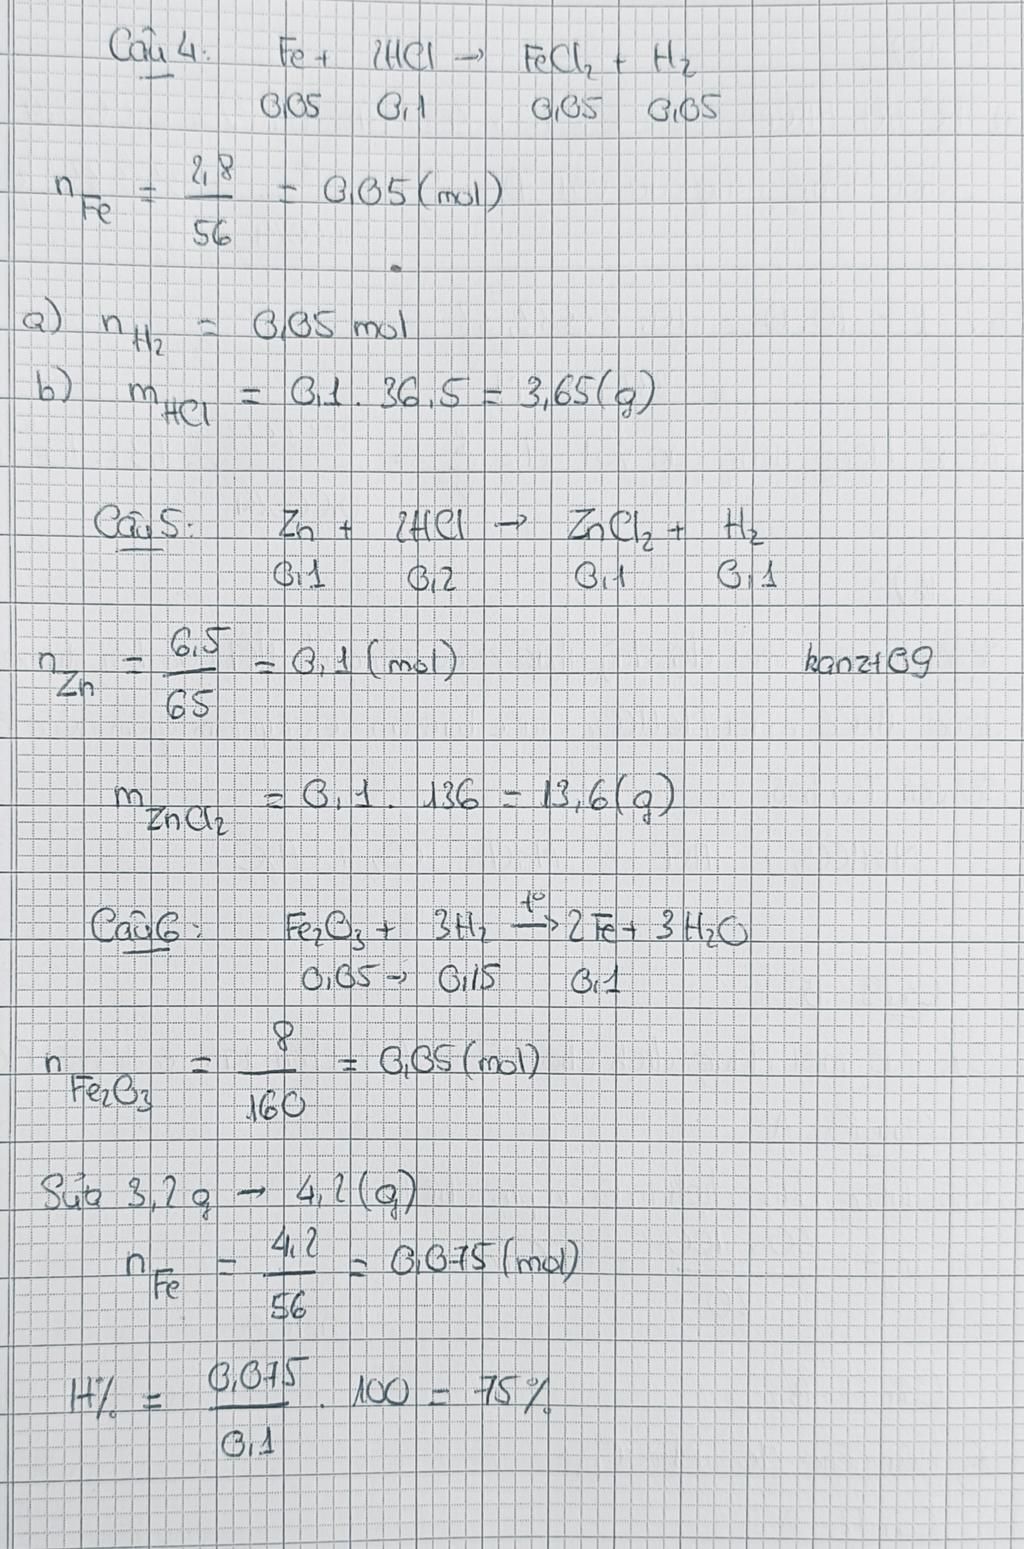 Câu 4: Fe + 2HCl → FeCl₂ + H₂
0,05 0,1 0,05 0,05
n_Fe = 2,8/56 = 0,05 (mol)
a) n_H₂ = 0,05 mol
b) m_HCl = 0,1 . 36,5 = 3,65 (g)
Câu 5: Zn + 2HCl → ZnCl₂ + H₂
0,1 0,2 0,1 0,1
n_Zn = 6,5/65 = 0,1 (mol)
kanzt09
m_ZnCl₂ = 0,1 . 136 = 13,6 (g)
Câu 6: Fe₂O₃ + 3H₂ →(t°) 2Fe + 3H₂O
0,05 → 0,15 0,1
n_Fe₂O₃ = 8/160 = 0,05 (mol)
Sửa 3,2 g → 4,2 (g)
n_Fe = 4,2/56 = 0,075 (mol)
H% = 0,075/0,1 . 100 = 75%